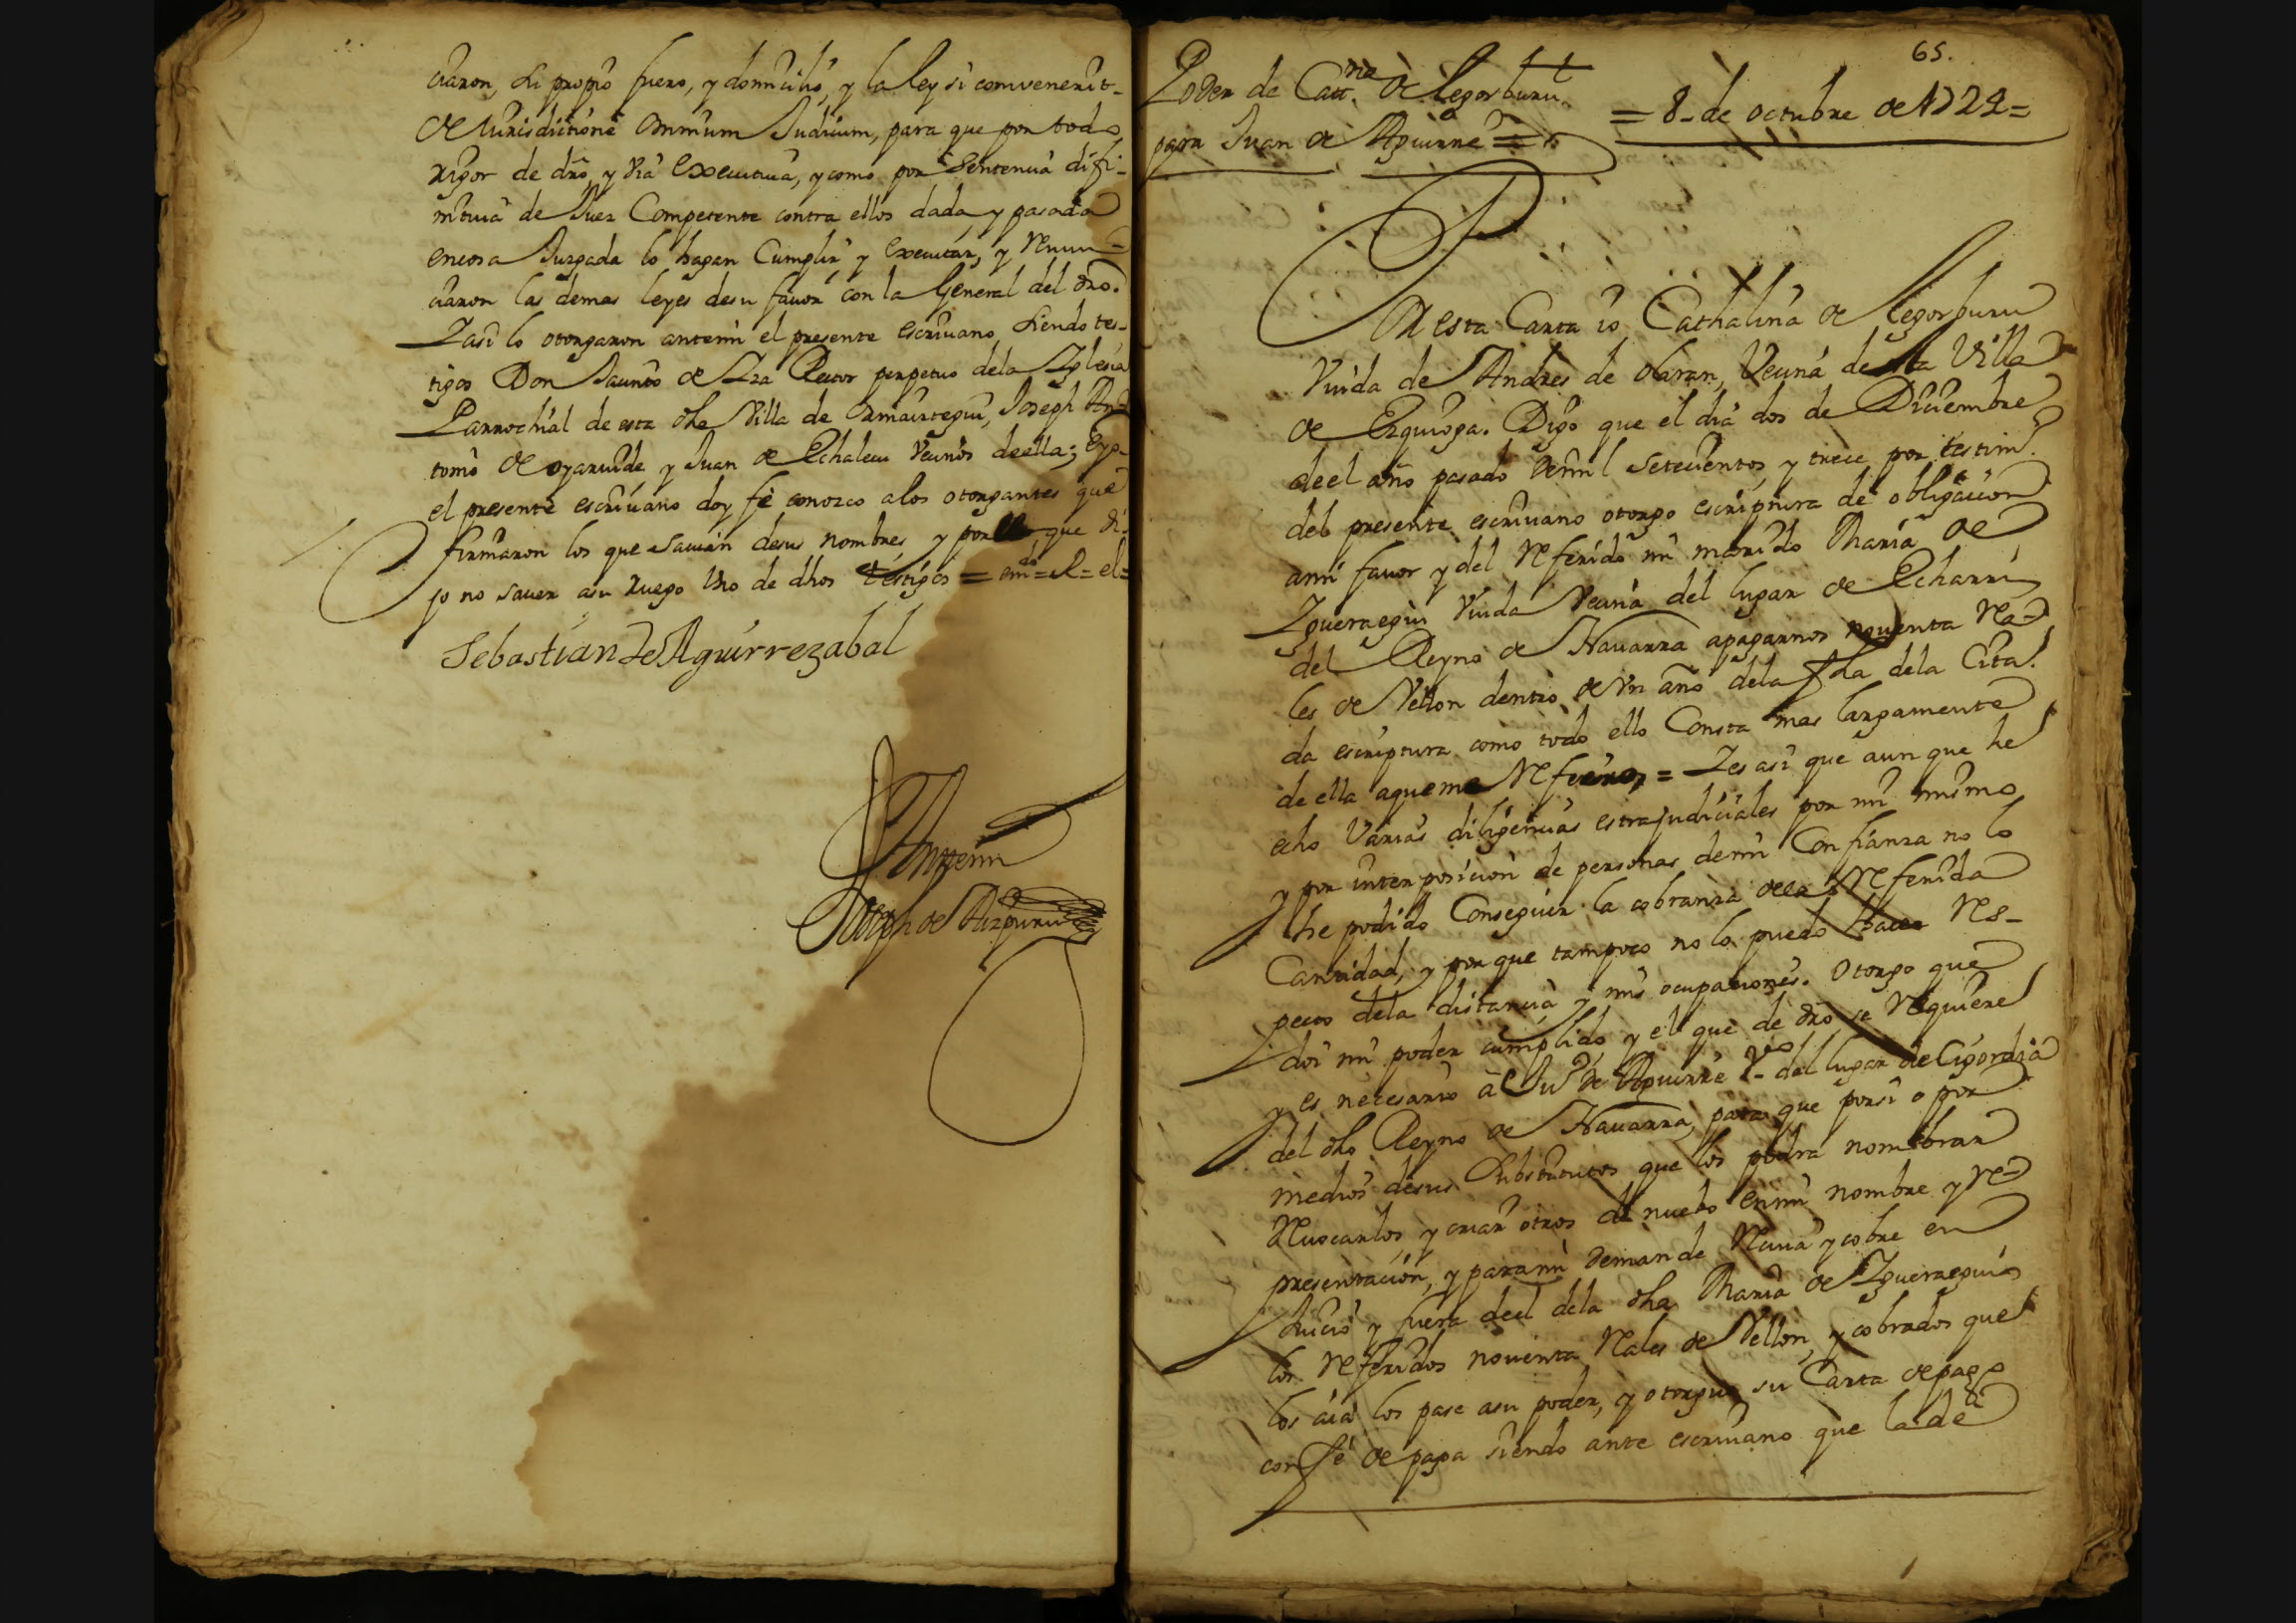 ciaron, su propio fuero, y domicilio, y la ley si combenerit
de Jurisdictione omnium Judicum, para que por todo
rigor de dro, y via executiva, y como por sentencia difi-
nitiva de Juez Competente contra ellos dada, y pasada
en cosa Juzgada lo hagan Cumplir y executar, y renun-
ciaron las demas leyes de su favor con la General del dro.
Y asi lo otorgaron antemi el presente escrivano siendo tes-
tigos Don Jacinto de Rector perpetuo dela Yglesia
Parrochial de esta dha Villa de Ormaiztegui, Joseph An-
tonio de oyarvide y Juan de Echalecu vecinos de ella; e yo
el presente escrivano doy fe conozco a los otorgantes que
firmaron los que savian de sus nombres y por el que di-
jo no saver a su ruego Uno de dhos testigos = emdo = el = el =
Sebastian de Aguirrezabal
Antemi
Joseph de Aizpuru
65.
Poder de Catt.na de Legorburu
para Juan de Aguirre =
= 8 - de octubre de 1722 =
Por esta Carta io Cathalina de Legorburu
Viuda de Andres de olaran, Vecina de esta Villa
de Ezquioga. Digo que el dia dos de Diciembre
de el año pasado de mil setecientos, y trece por testim.o
del presente escrivano otorgo escriptura de obligacion
a mi favor y del referido mi marido Maria de
Ygueraegui Viuda Vecina del lugar de Echarri
del Reyno de Navarra a pagarnos noventa Rea-
les de Vellon dentro de Un año dela fha dela Cita-
da escriptura como todo ello Consta mas largamente
de ella a que me refiero, = Y es asi que aun que he
echo Varias diligencias estrajudiciales por mi mismo
y por interposicion de personas de mi Confianza no lo
he podido Conseguir la cobranza dela referida
Cantidad, y por que tampoco no lo puedo hacer res-
pecto dela distancia y mis ocupaciones. Otorgo que
doi mi poder cumplido y el que de dro se requiere
y es necesario a Ju.o de Aguirre V.o del lugar de Cigordia
del dho Reyno de Navarra, para que por si o por
medios de sus Substitutos que los podra nombrar
revocarlos, y criar otros de nuebo en mi nombre y re-
presentacion, y para mi demande reciva y cobre en
Juicio y fuera de el dela dha Maria de Ygueraegui
los referidos noventa Reales de Vellon, y cobrados que
los aia los pase a su poder, y otorgue su Carta de pago
con fe de paga siendo ante escrivano que la de